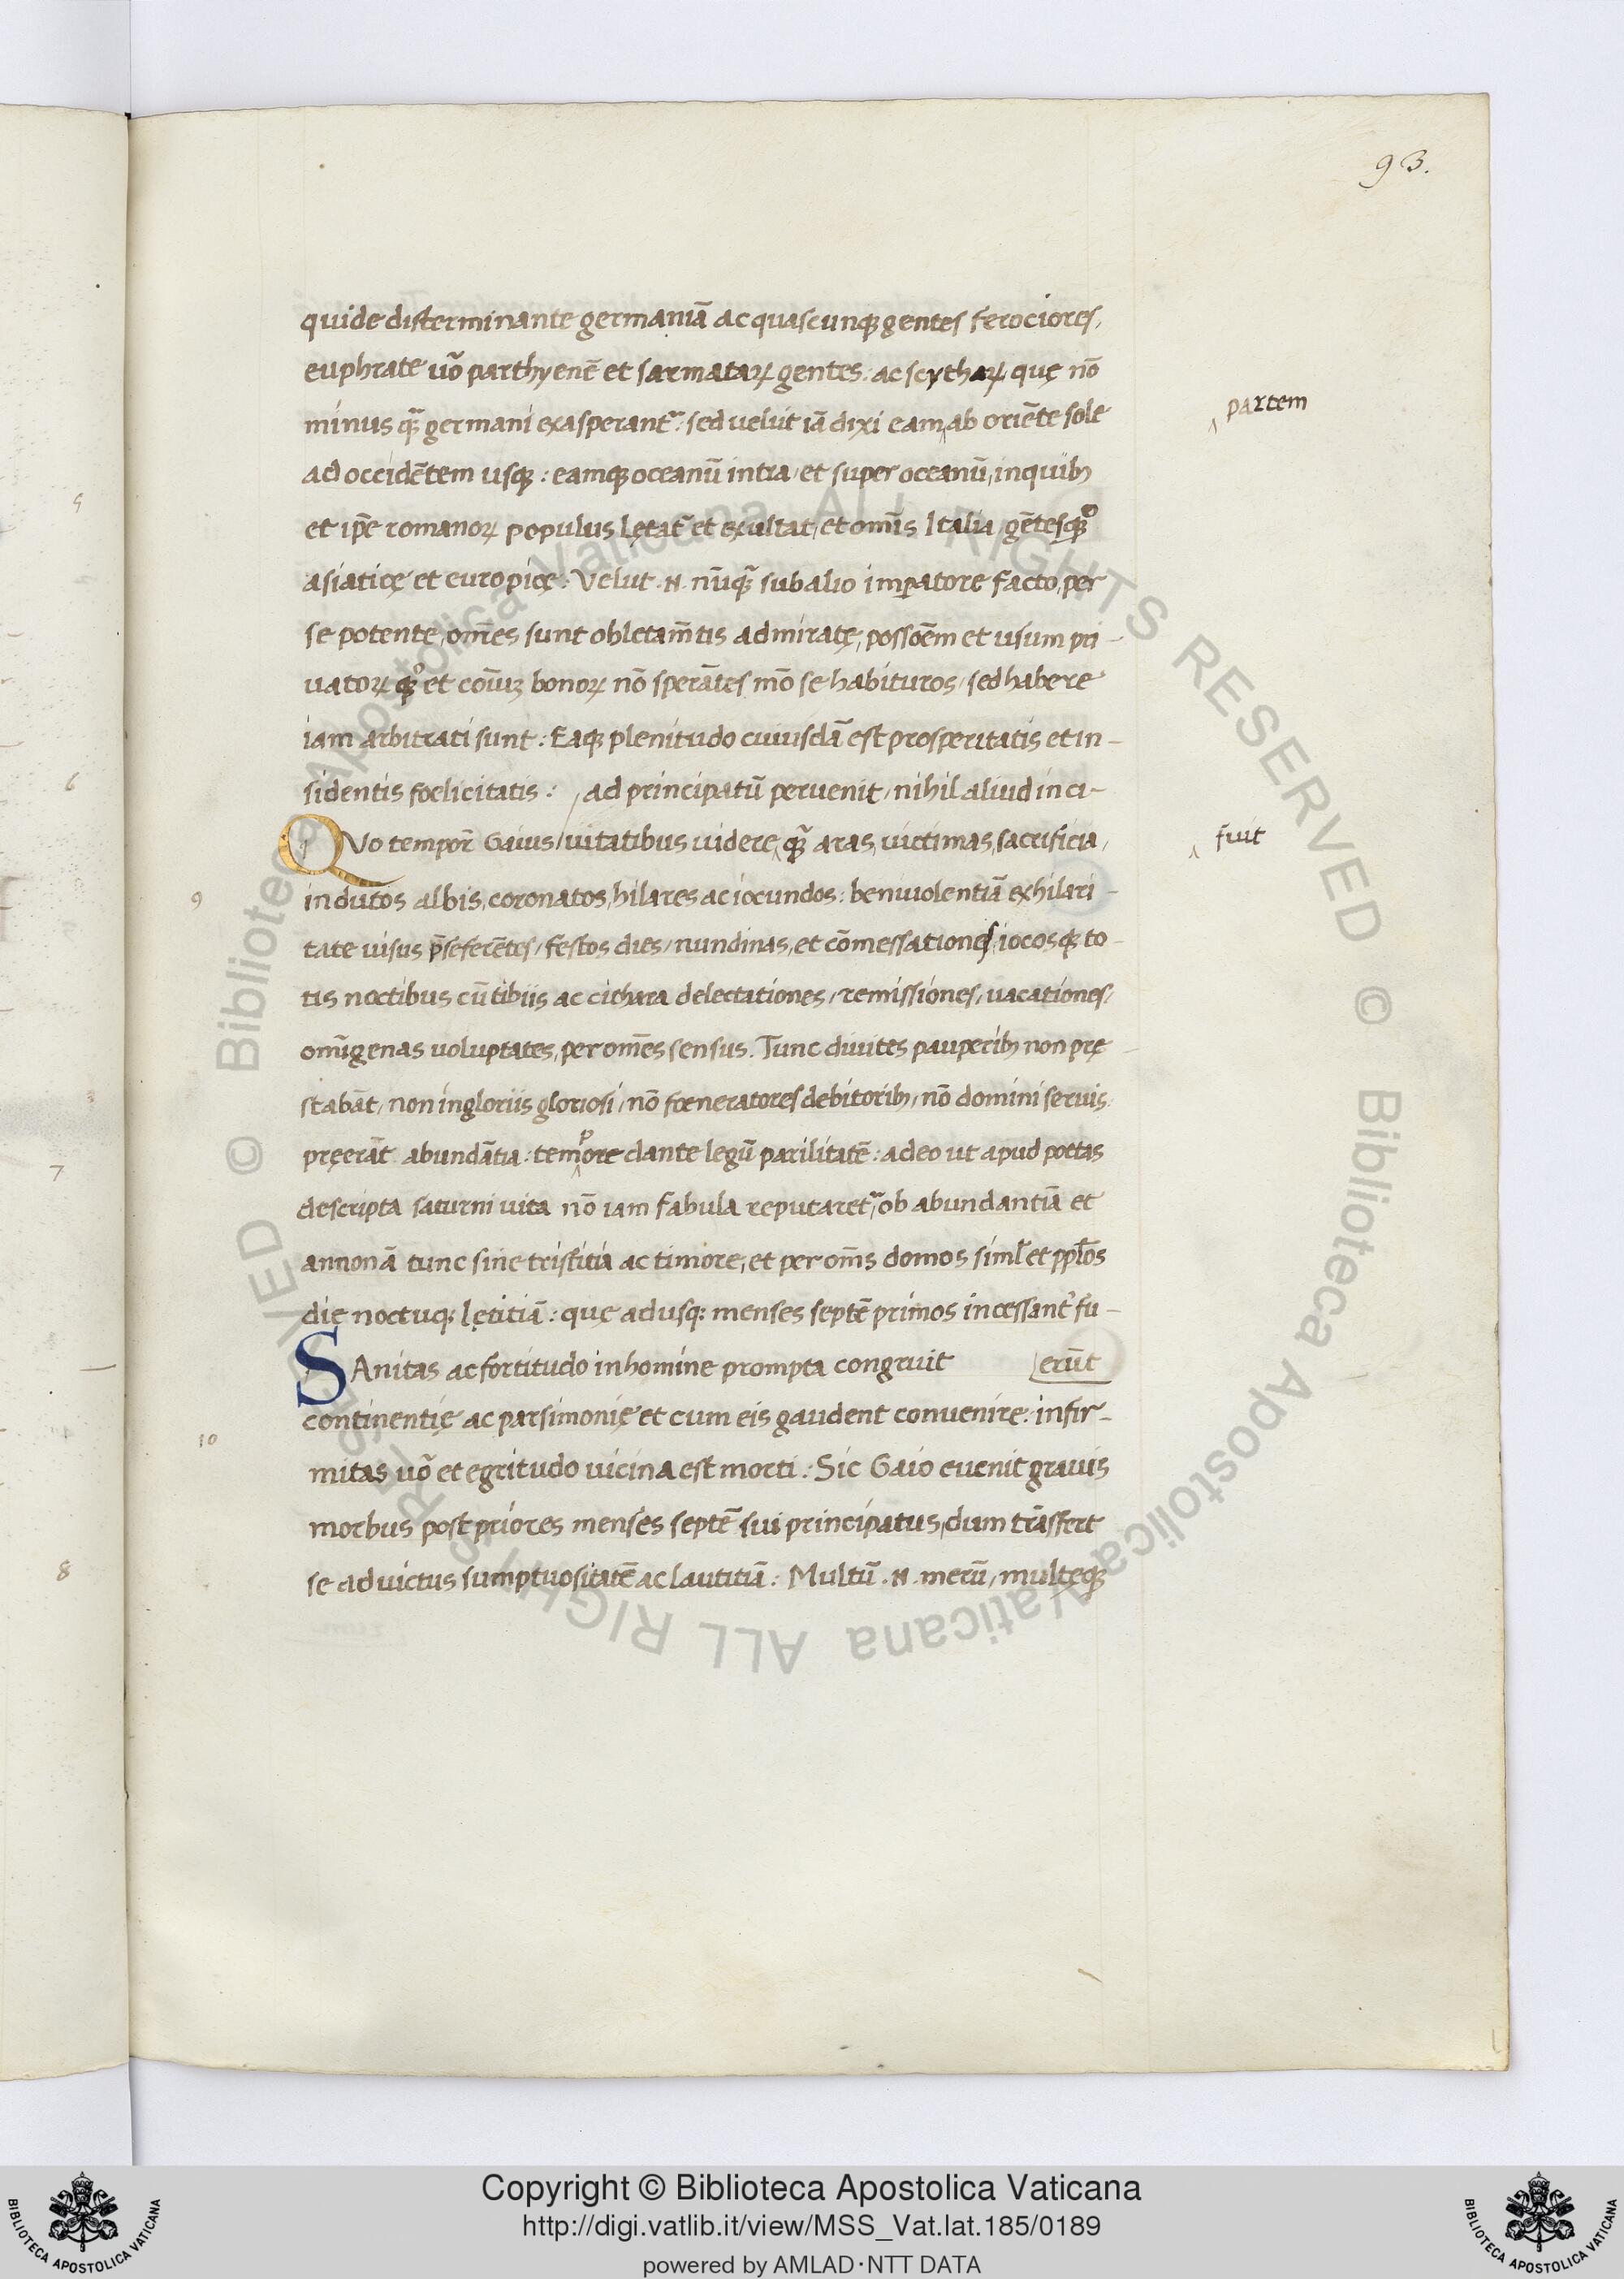 93.
quide disterminante germaniã ac quascunqꝫ gentes ferociores,
euphrate uõ parthyenẽ et sarmataꝝ gentes: ac scythaꝝ quę nõ
minus qꝫ̃ germani exasperantᷣ: sed uelut iã dixi eam‸ab oriẽte sole
‸ partem
ad occidẽtem usqꝫ: eamqꝫ oceanũ intra, et super oceanũ, in quibꝫ
et ip̃e romanoꝝ populus lętatᷣ et exultat, et om̃is Italia gẽtesqꝫ
asiaticę et europicę: Velut .N. nũqꝫ̃ sub alio imꝑatore facto, per
se potente, om̃es sunt oblectam̃tis admiratę, possẽem et usum pri-
uatoꝝ qꝫ et cõiuꝫ bonoꝝ nõ sperãtes mõ se habituros, sed habere
iam arbitrati sunt: Eaqꝫ plenitudo cuiusdã est prosperitatis et in-
sidentis foelicitatis: / ad principatũ peruenit, nihil aliud in ci-
QVo tempor̃ Gaius / uitatibus uidere‸qꝫ̃ aras, uictimas, sacrificia,
‸ fuit
indutos albis, coronatos, hilares ac iocundos: beniuolentiã exhilari-
tate uisus p̃seferẽtes, festos dies, nundinas, et cõmessationes, iocosqꝫ to-
tis noctibus cũ tibiis ac cithara delectationes, remissiones, uacationes,
om̃igenas uoluptates, per om̃es sensus. Tunc diuites pauperibꝫ non pre
stabãt, non ingloriis gloriosi, nõ foeneratores debitoribꝫ, nõ domini seruis
pręerãt abundãtia: tem‸pore dante legũ parilitatẽ: adeo ut apud poetas
descripta saturni uita nõ iam fabula reputaretᷣ, ob abundantiã et
annonã tunc sine tristitia ac timore, et per om̃s domos siml̃ et ppl̃os
die noctuqꝫ lętitiã: quę adusqꝫ menses septẽ primos incessantᷣ fu-
SAnitas ac fortitudo in homine prompta congruit erũt
continentię ac parsimonię et cum eis gaudent conuenire: infir-
mitas uõ et egritudo uicina est morti: Sic Gaio euenit grauis
morbus post priores menses septẽ sui principatus, dum trãsfert
se ad uictus sumptuositatẽ ac lautitiã: Multũ .N. merũ, multęqꝫ
9
10
5
6
7
8
© Biblioteca Apostolica Vaticana ALL RIGHTS RESERVED © Biblioteca Apostolica Vaticana ALL RIGHTS RESERVED
Copyright © Biblioteca Apostolica Vaticana
http://digi.vatlib.it/view/MSS_Vat.lat.185/0189
powered by AMLAD·NTT DATA
BIBLIOTECA APOSTOLICA VATICANA
BIBLIOTECA APOSTOLICA VATICANA